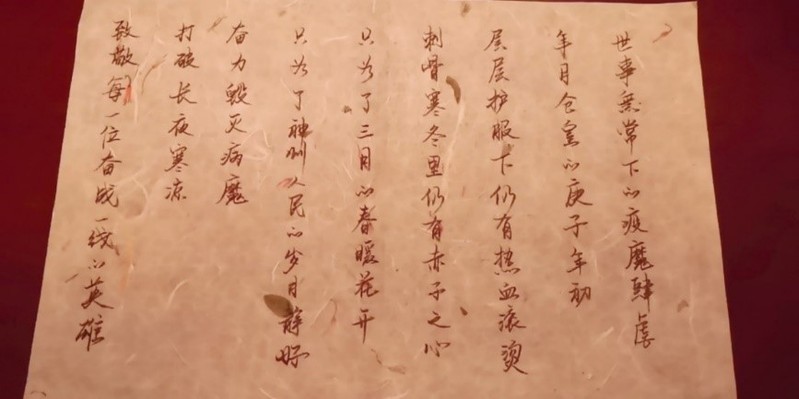 世事無常下的疫魔肆虐
年月仓皇的庚子年初
层层护服下仍有热血滚烫
刺骨寒冬里仍有赤子之心
只为了三月的春暖花开
只为了神州人民的岁月静好
奋力毁灭病魔
打破长夜寒凉
致敬每一位奋战一线的英雄